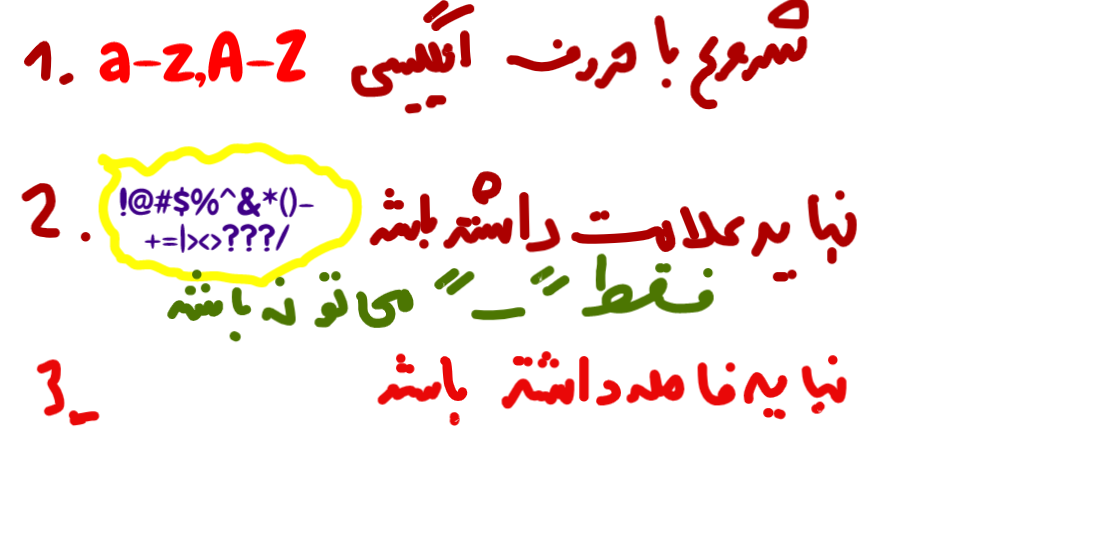 1. a-z,A-Z شروع با حروف انگلیسی
2. !@#$%^&*()-
+=|><>???/ نباید علامت داشته باشد
فقط "_" می تونه باشد
3_ نباید فاصله داشته باشد